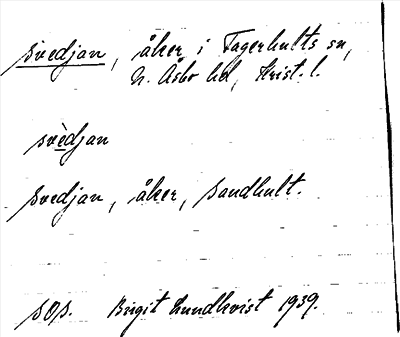 svedjan, åker i Fagerhults sn,
N. Åsbo hd, Krist. l.
svèdjan
svedjan, åker, Sandhult.
sOs. Birgit Lundkvist 1939.